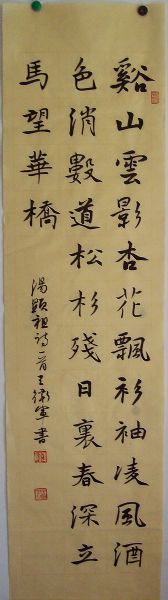 谿山雲影杏花飄衫袖凌風酒
色消數道松杉殘日裏春深立
馬望華橋
湯顯祖詩一首王衛軍書